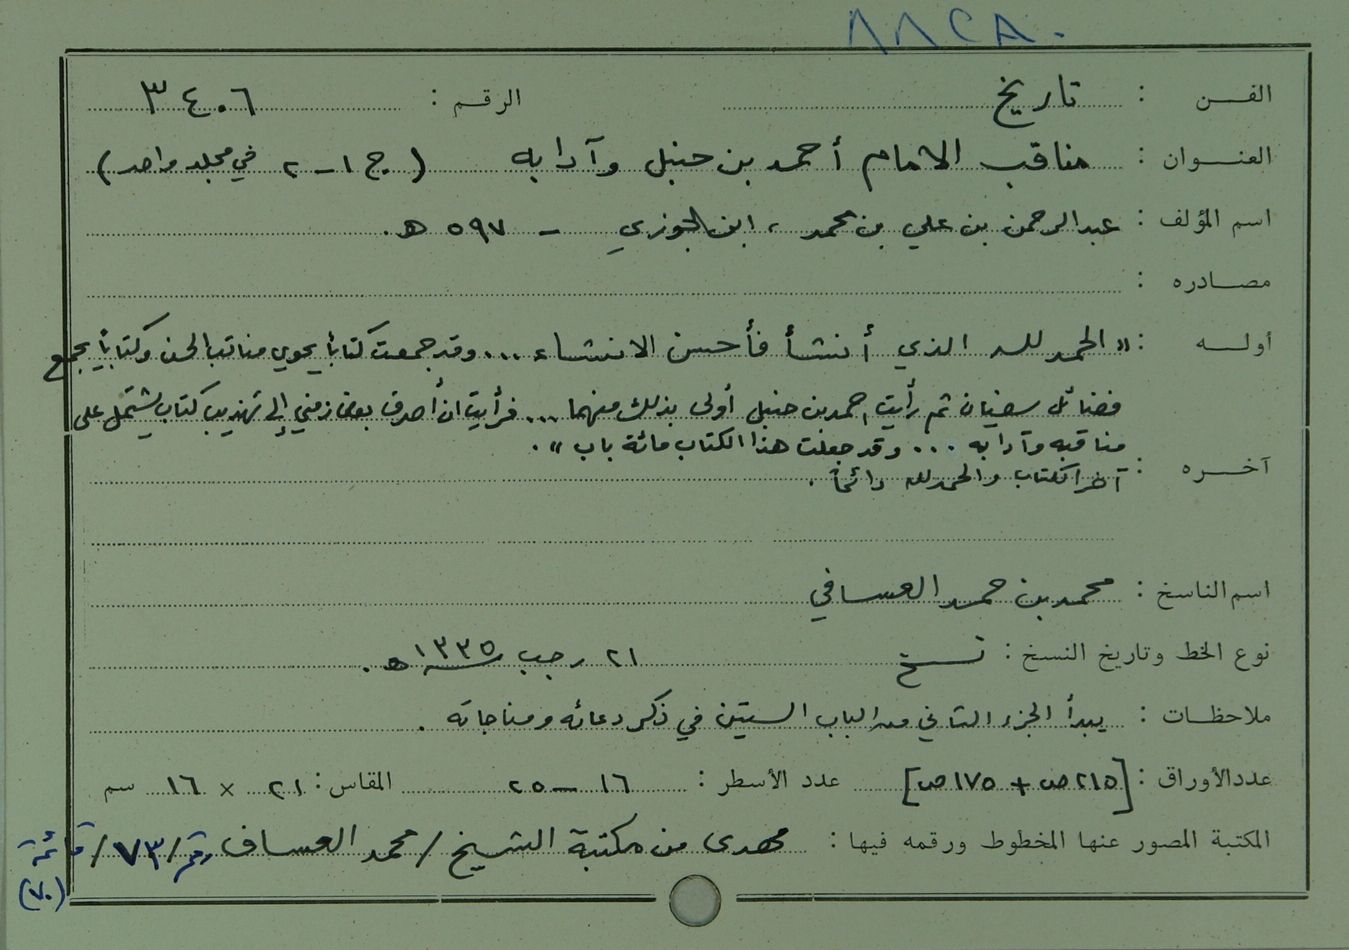 ٨٨٢٨٠
الفن : تاريخ الرقم : ٣٤٠٦
العنوان : مناقب الامام أحمد بن حنبل وآدابه (ج ١-٢ في مجلد واحد)
اسم المؤلف : عبدالرحمن بن علي بن محمد ، ابن الجوزي - ٥٩٧ هـ.
مصادره :
أوله : "الحمد لله الذي أنشأ فأحسن الانشاء ... وقد جمعت كتاباً يحوي مناقب الحسن وكتاباً يجمع
فضائل سفيان ثم رأيت احمد بن حنبل أولى بذلك منهما ... فرأيت ان أصرف بعض زمني إلى تهذيب كتاب يشتمل على
مناقبه وآدابه ... وقد جعلت هذا الكتاب مائة باب".
آخره : آخر الكتاب والحمد لله دائماً .
اسم الناسخ : محمد بن حمد العسافي
نوع الخط وتاريخ النسخ : نسخ ٢١ رجب سنة ١٣٣٥ هـ.
ملاحظات : يبدأ الجزء الثاني من الباب الستين في ذكر دعائه ومناجاته .
عدد الأوراق : [٢١٥ ص + ١٧٥ ص] عدد الأسطر : ١٦ - ٢٥ المقاس : ٢١ × ١٦ سم
المكتبة المصور عنها المخطوط ورقمه فيها : مهدى من مكتبة الشيخ / محمد العساف رقم / ٧٣ / قائمة
(٧٠)